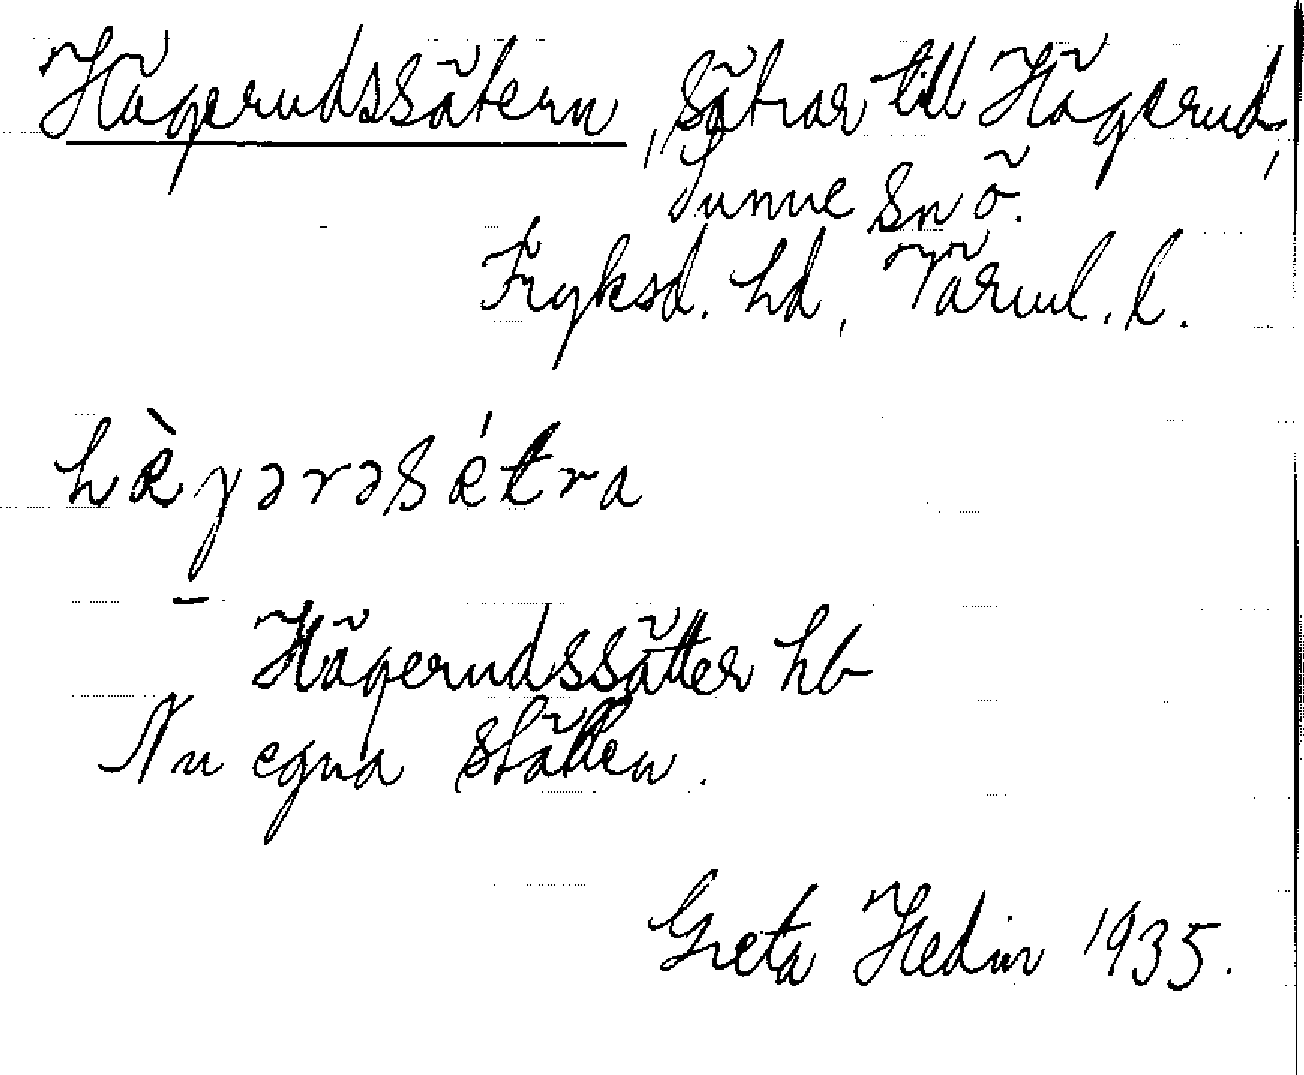 Hägerudssätern, sätrar till Hägerud,
Sunne sn ö.
Fryksd. hd, Värml. l.
hæ̀gərəsǽtra
Hägerudssätter hb
Nu egna ställen.
Greta Hedin 1935.